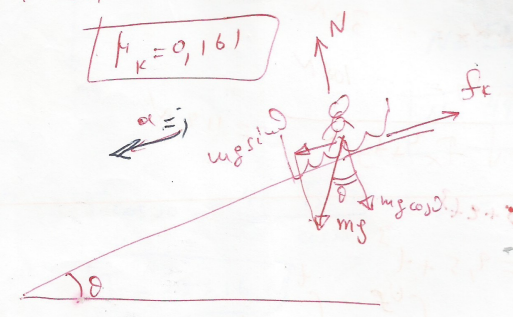 μₖ=0,161
N
fₖ
a = ?
mg sinθ
θ
mg cosθ
mg
θ